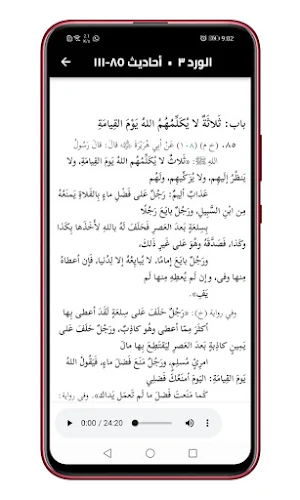 9:02
الورد ٣ • أحاديث ٨٥-١١١
باب: ثَلَاثَةٌ لَا يُكَلِّمُهُمُ اللهُ يَوْمَ القِيَامَةِ
٨٥. (خ م) (١٠٨) عَنْ أَبِي هُرَيْرَةَ ﵁ قَالَ: قَالَ رَسُولُ
اللهِ ﷺ: «ثَلَاثٌ لَا يُكَلِّمُهُمُ اللهُ يَوْمَ القِيَامَةِ، وَلَا
يَنْظُرُ إِلَيهِم، ولَا يُزَكِّيهِم، ولَهُم
عَذَابٌ أَلِيمٌ: رَجُلٌ عَلَى فَضْلِ مَاءٍ بِالفَلَاةِ يَمْنَعُهُ
مِن ابْنِ السَّبِيلِ، ورَجُلٌ بَايَعَ رَجُلًا
بِسِلعَةٍ بَعدَ العَصرِ فَحَلَفَ لَهُ بِاللهِ لَأَخَذَهَا بِكَذَا
وكَذَا، فَصَدَّقَهُ وهُوَ عَلَى غَيرِ ذَلكَ،
ورَجُلٌ بَايَعَ إِمَامًا، لَا يُبَايِعُهُ إِلَّا لِدُنيَا، فَإِن أَعطَاهُ
مِنهَا وفى، وإِن لَم يُعطِهِ مِنهَا لَم
يَفِ».
وفي رواية (خ): «رَجُلٌ حَلَفَ عَلَى سِلعَةٍ لَقَدْ أَعطى بِهَا
أَكثَرَ مِمَّا أَعطى وهُو كَاذِبٌ، ورَجُلٌ حَلَفَ عَلى
يَمِينٍ كَاذِبَةٍ بَعدَ العَصرِ لِيَقتَطِعَ بِهَا مَالَ
امرِئٍ مُسلِمٍ، ورَجُلٌ مَنَعَ فَضلَ مَاءٍ، فَيَقُولُ اللهُ
يَومَ القِيَامَةِ: اليَومَ أَمنَعُكَ فَضلِي
كَمَا مَنَعتَ فَضلَ مَا لَم تَعمَل يَدَاكَ». وفي رواية:
0:00 / 24:20